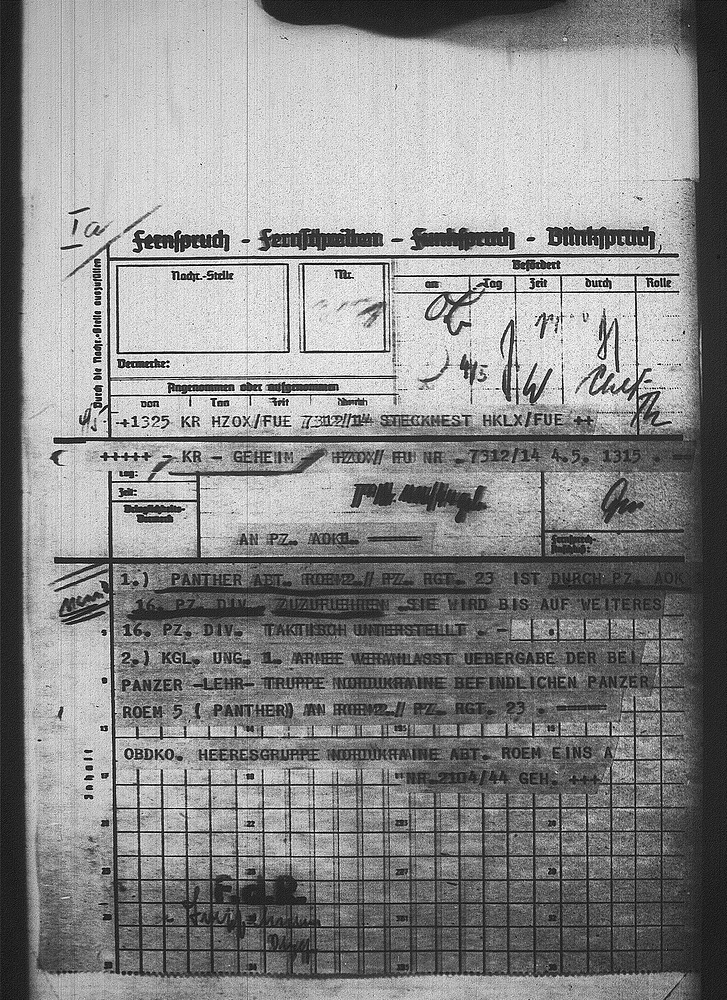 Ia
Fernspruch - Fernschreiben - Funkspruch - Blinkspruch
Durch die Nachr.-Stelle auszufüllen
Nachr.-Stelle
Nr.
Befördert
an Tag Zeit durch Rolle
Vermerke:
4/5
Angenommen oder aufgenommen
von Tag Zeit durch
++1325 KR HZOX/FUE 7312/14 STECKMEST HKLX/FUE ++
+++++ - KR - GEHEIM - HZOX/ FU NR .7312/14 4.5. 1315 . --
Tag:
Zeit:
AN PZ. AOK1. ----
1.) PANTHER ABT. ROEM2.// PZ. RGT. 23 IST DURCH PZ. AOK
16. PZ. DIV. ZUZUFUEHREN .SIE WIRD BIS AUF WEITERES
16. PZ. DIV. TAKTISCH UNTERSTELLT . -
2.) KGL. UNG. 1. ARMEE VERANLASST UEBERGABE DER BEI
PANZER -LEHR- TRUPPE NORDUKRAINE BEFINDLICHEN PANZER
ROEM 5 ( PANTHER) AN ROEM2.// PZ. RGT. 23 . ----
OBDKO. HEERESGRUPPE NORDUKRAINE ABT. ROEM EINS A
NR.2104/44 GEH. +++
Inhalt
F.d.R.